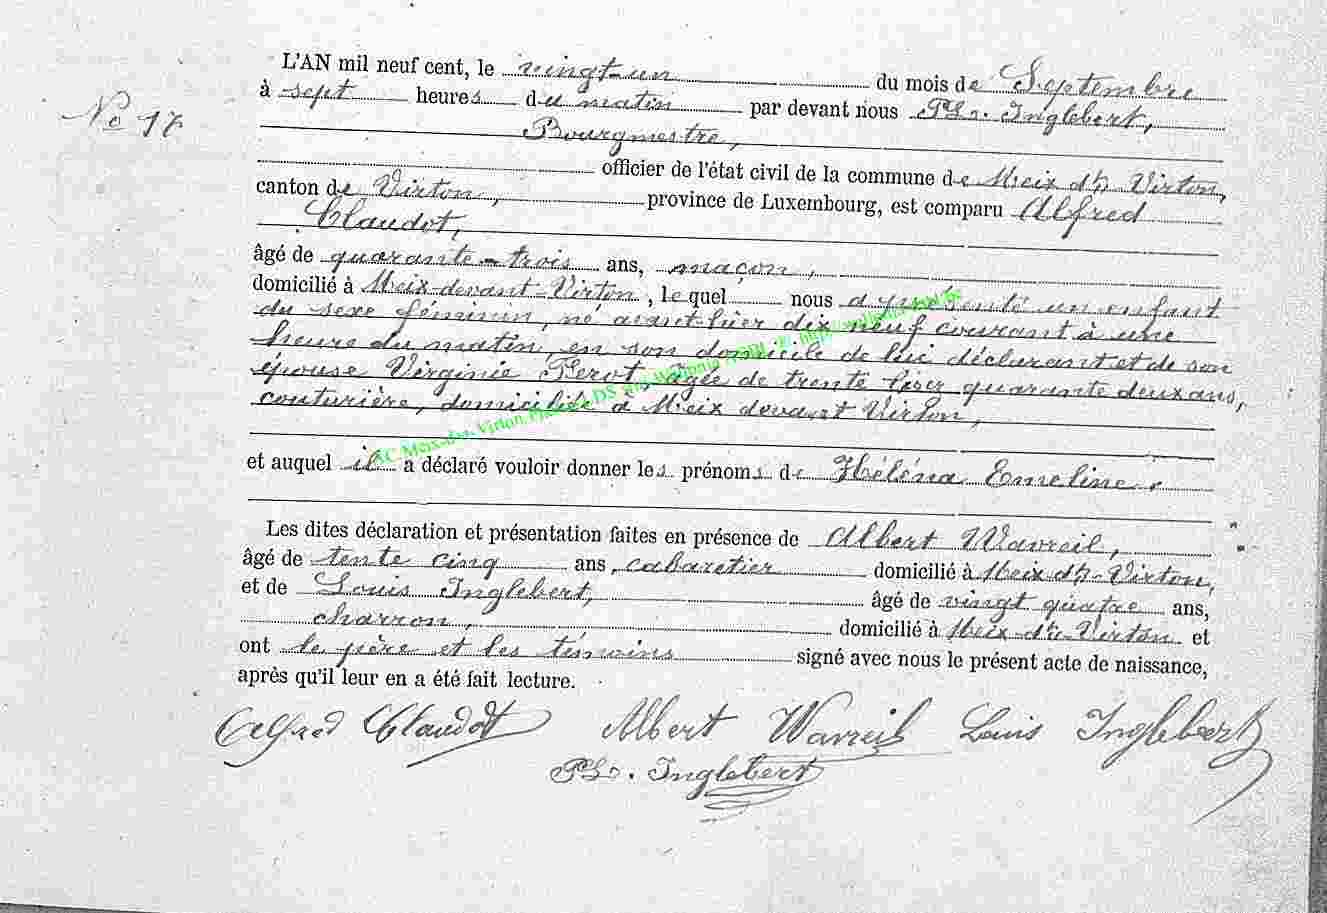 L'AN mil neuf cent, le vingt-un du mois de Septembre
à sept heures du matin par devant nous Ph. Inglebert,
No 17
Bourgmestre,
officier de l'état civil de la commune de Meix dt Virton,
canton de Virton, province de Luxembourg, est comparu Alfred
Claudot,
âgé de quarante-trois ans, maçon,
domicilié à Meix-devant-Virton, lequel nous a présenté un enfant
du sexe féminin, né avant-hier dix neuf courant à une
heure du matin, en son domicile de lui déclarant et de son
épouse Virginie Perot, âgée de trente lisez quarante deux ans,
couturière, domiciliée à Meix devant Virton,
et auquel il a déclaré vouloir donner les prénoms de Héléna Emeline.
Les dites déclaration et présentation faites en présence de Albert Wavreil,
âgé de tente cinq ans, cabaretier domicilié à Meix dt-Virton,
et de Louis Inglebert, âgé de vingt quatre ans,
charron, domicilié à Meix-dt-Virton et
ont le père et les témoins signé avec nous le présent acte de naissance,
après qu'il leur en a été fait lecture.
Alfred Claudot Albert Wavreil Louis Inglebert
Ph. Inglebert